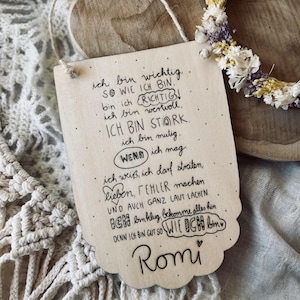 ich bin wichtig.
SO WIE ICH BIN
bin ich RICHTIG
ich bin wertvoll.
ICH BIN STARK
ich bin mutig.
WENN ich mag.
ich weiß, ich darf strahlen,
lieben, FEHLER machen
UND AUCH GANZ LAUT LACHEN
ICH bin klug, bekomme alles hin
DENN ICH BIN GUT SO WIE ICH bin.
Romi